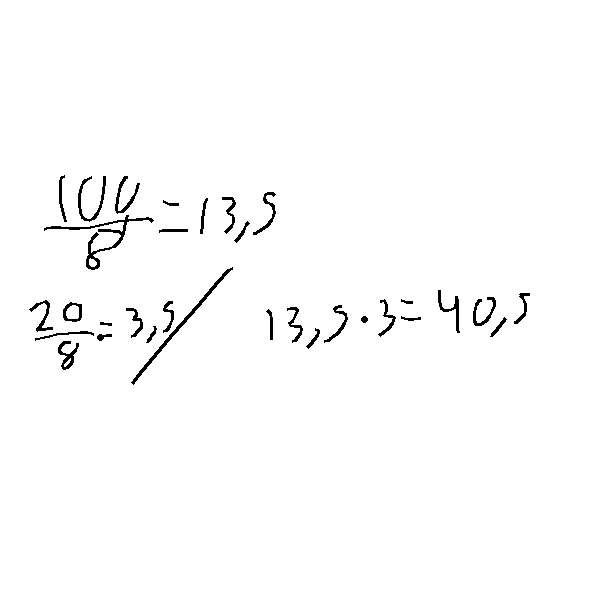 100/8 = 13,5
20/8 = 3,5 / 13,5 · 3 = 40,5